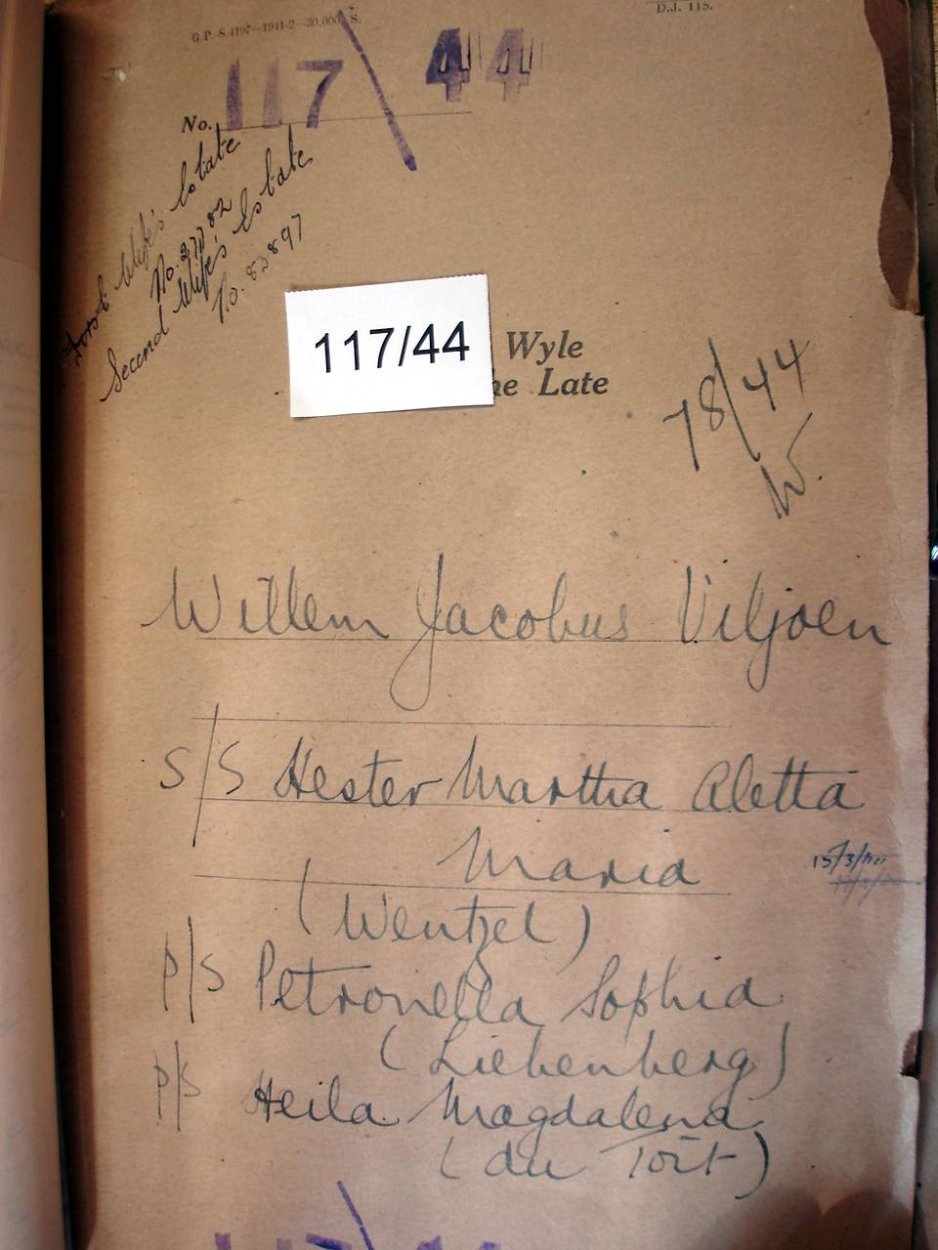 G.P.-S.4197—1941-2—20,000. S.
D.J. 115.
No. 117/44
First Wife's Estate
No. 37782
Second Wife's Estate
No. 83897
117/44
Wyle
he Late
78/44
W.
Willem Jacobus Viljoen
S/S Hester Martha Aletta
Maria
(Wentzel)
15/3/
P/S Petronella Sophia
(Liebenberg)
P/S Heila Magdalena
(du Toit)
117 44